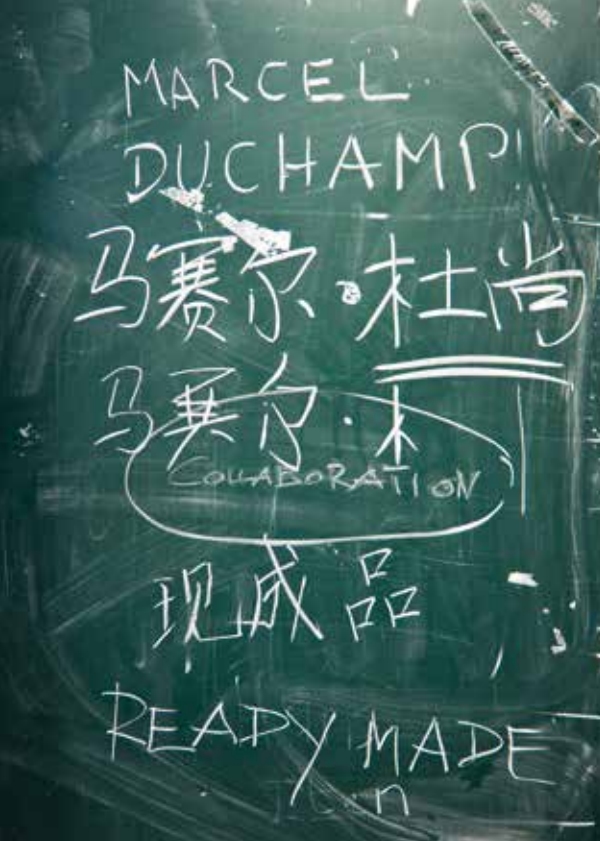 MARCEL
DUCHAMP
马赛尔·杜尚
马赛尔·木
COLLABORATION
现成品
READY MADE